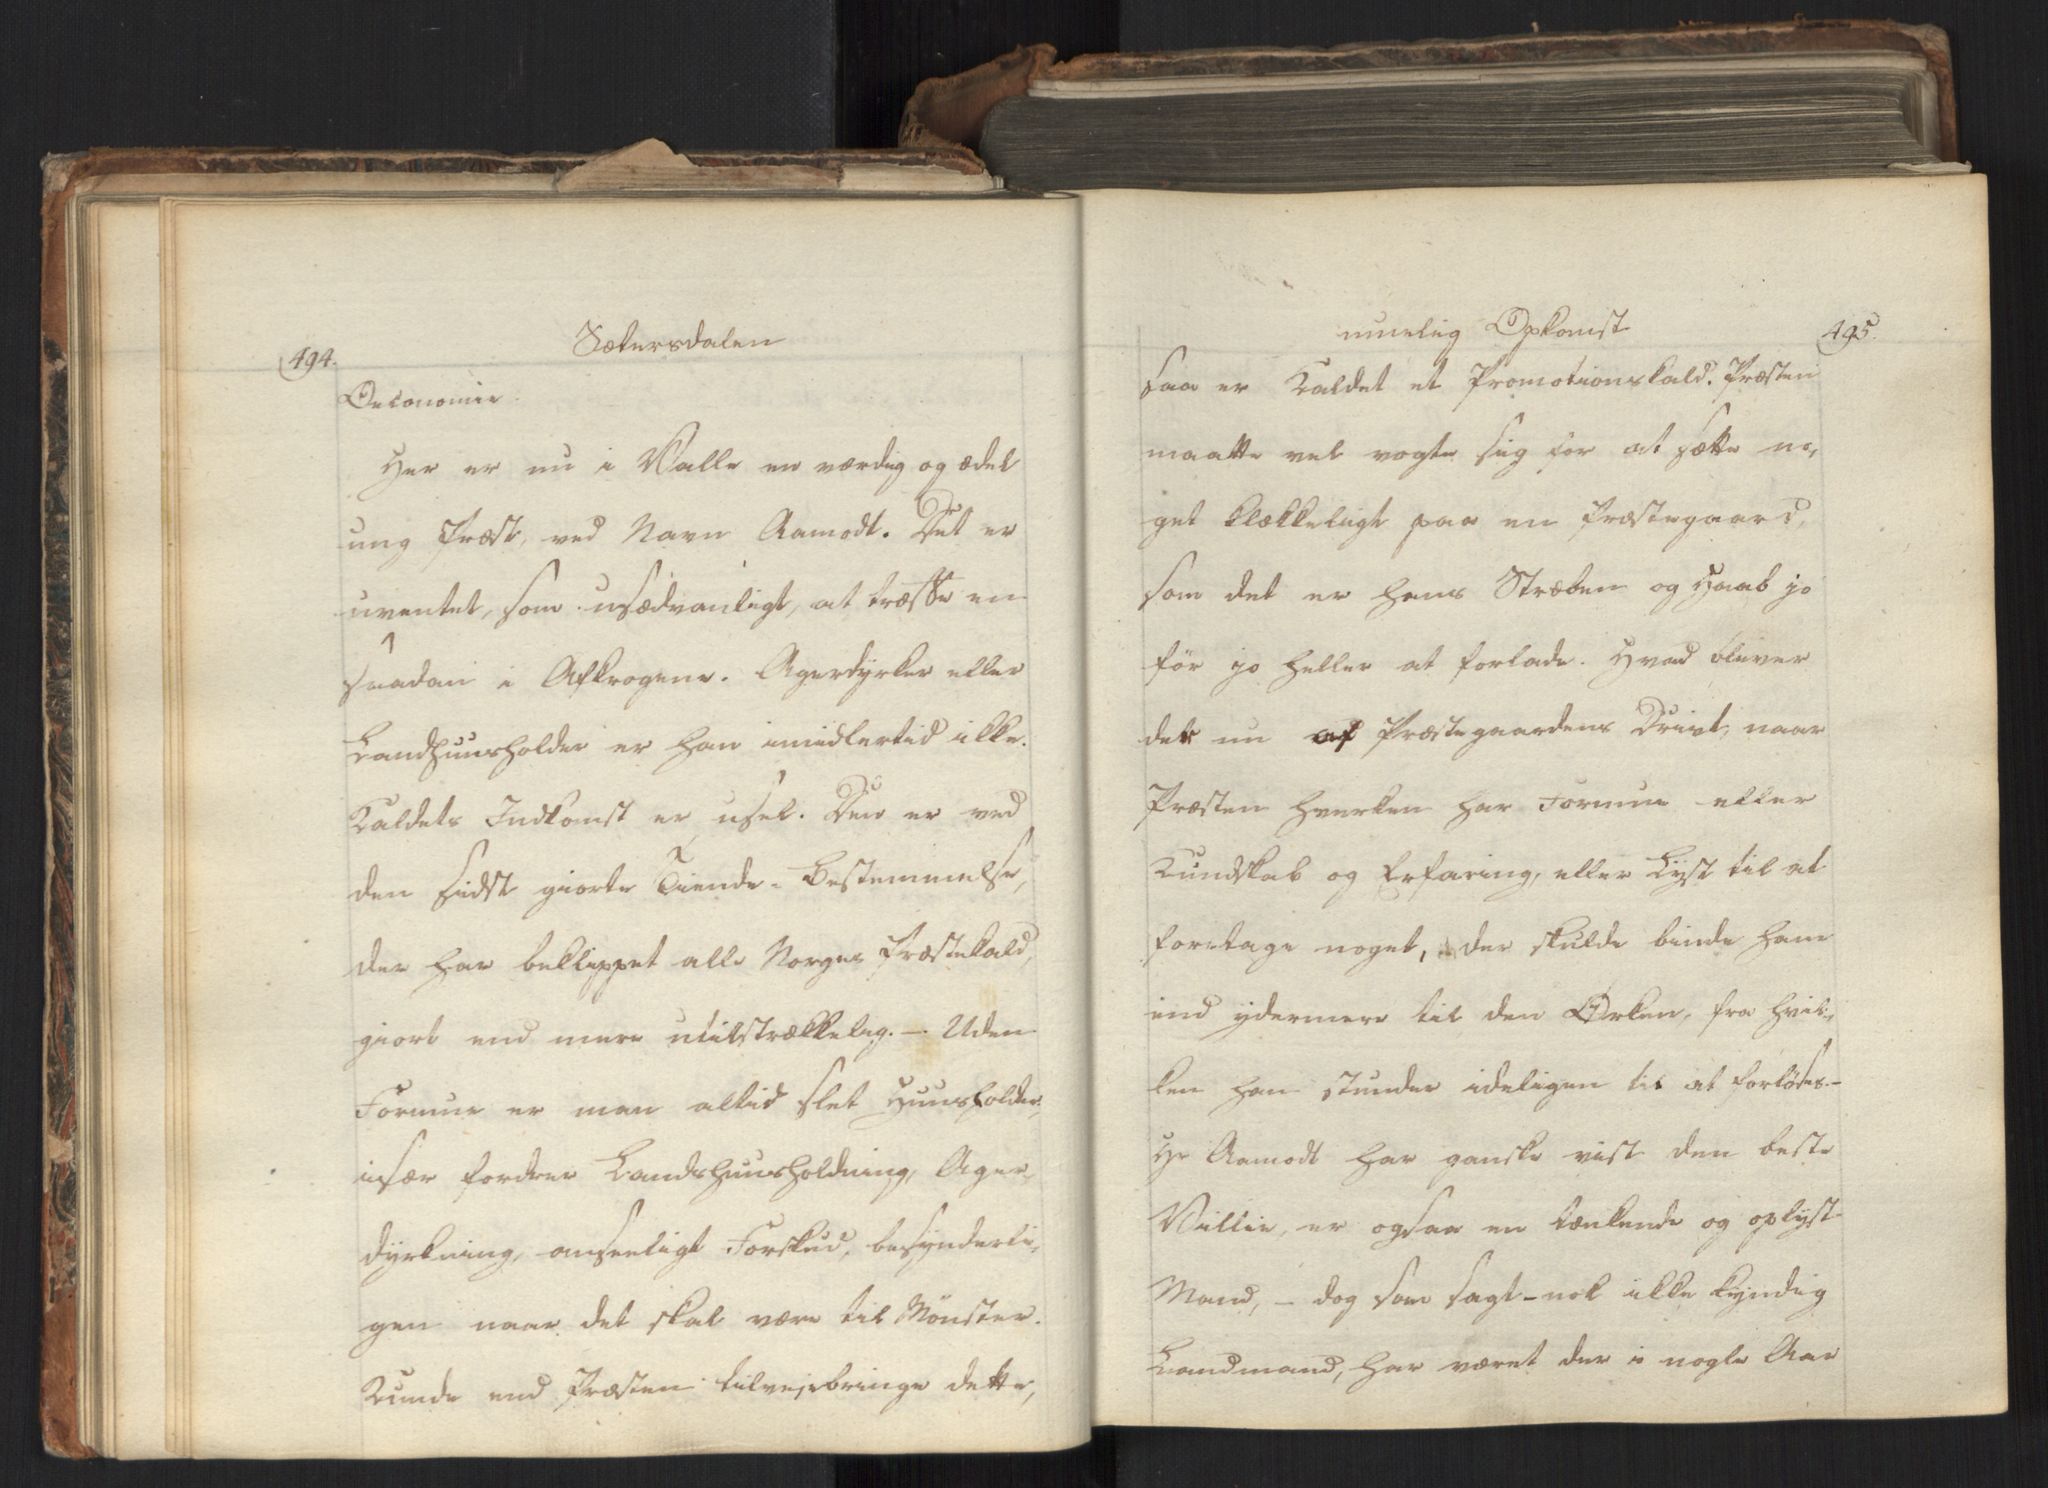 494.
Sætersdalen
Oeconomie
Her er nu i Valle en værdig og ædel
ung Præst, ved Navn Aamodt. Det er
uventet, som usædvanligt, at træffe en
saadan i Afkrogene. Agerdyrker eller
Landhuusholder er han imidlertid ikke.
Kaldets Indkomst er ussel. Den er ved
den sidst giorte Tiende-Bestemmelse,
der har beklippet alle Norges Præstekald,
giort end mere utilstrækkelig. — Uden
Formue er man altid slet Huusholder,
især fordrer Landhuusholdning, Ager-
dyrkning, anseeligt Forskud, besynderli-
gen naar det skal være til Mønster.
Kunde end Præsten tilvejebringe dette,
muelig Opkomst
495.
saa er Kaldet et Promotionskald. Præsten
maatte vel vogte sig for at sætte no-
get klækkeligt paa en Præstegaard,
som det er hans Stræben og Haab jo
før jo heller at forlade. Hvad bliver
det nu af Præstegaardens Drivt, naar
Præsten hverken har Formue eller
Kundskab og Erfaring, eller Lyst til at
foretage noget, der skulde binde ham
end ydermere til den Ørken, fra hvil-
ken han stunder ideligen til at forløses.—
Hr Aamodt har ganske vist den beste
Villie, er ogsaa en tænkende og oplyst
Mand, — dog som sagt — nok ikke kyndig
Landmand, har været der i nogle Aar